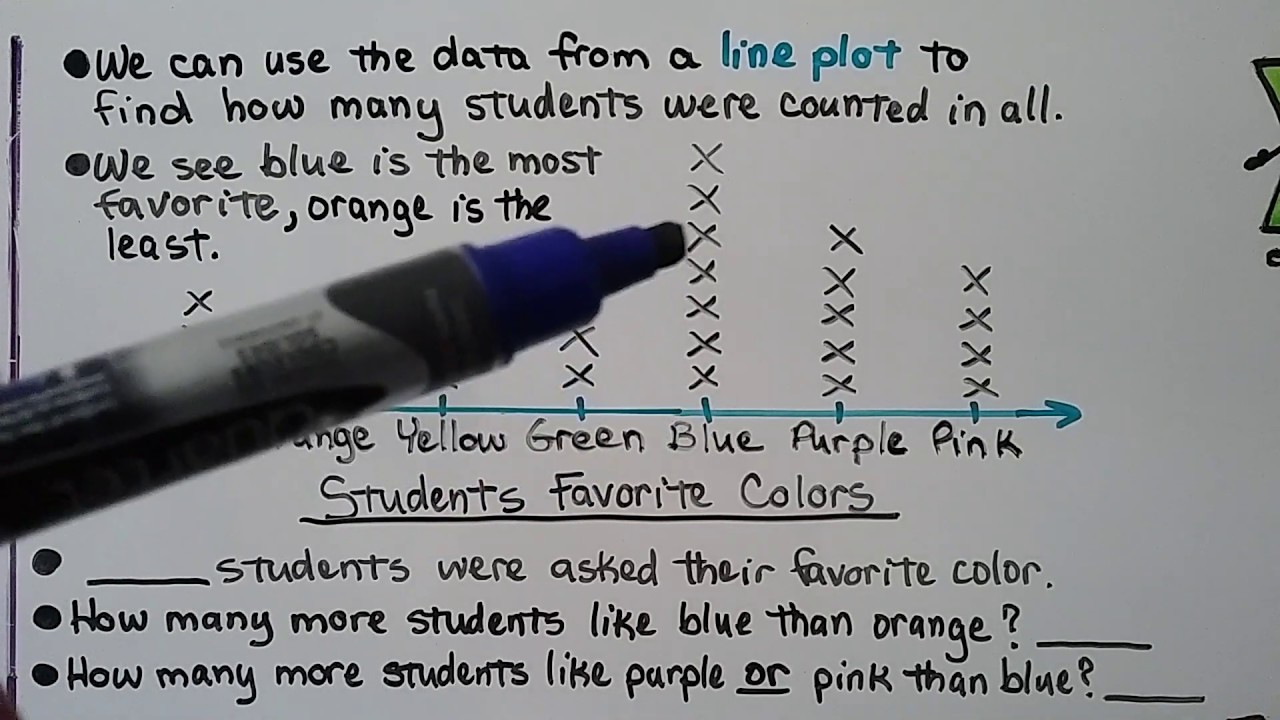 We can use the data from a line plot to
find how many students were counted in all.
We see blue is the most
favorite, orange is the
least.
Yellow Green Blue Purple Pink
Students Favorite Colors
____ students were asked their favorite color.
How many more students like blue than orange? ____
How many more students like purple or pink than blue? ____